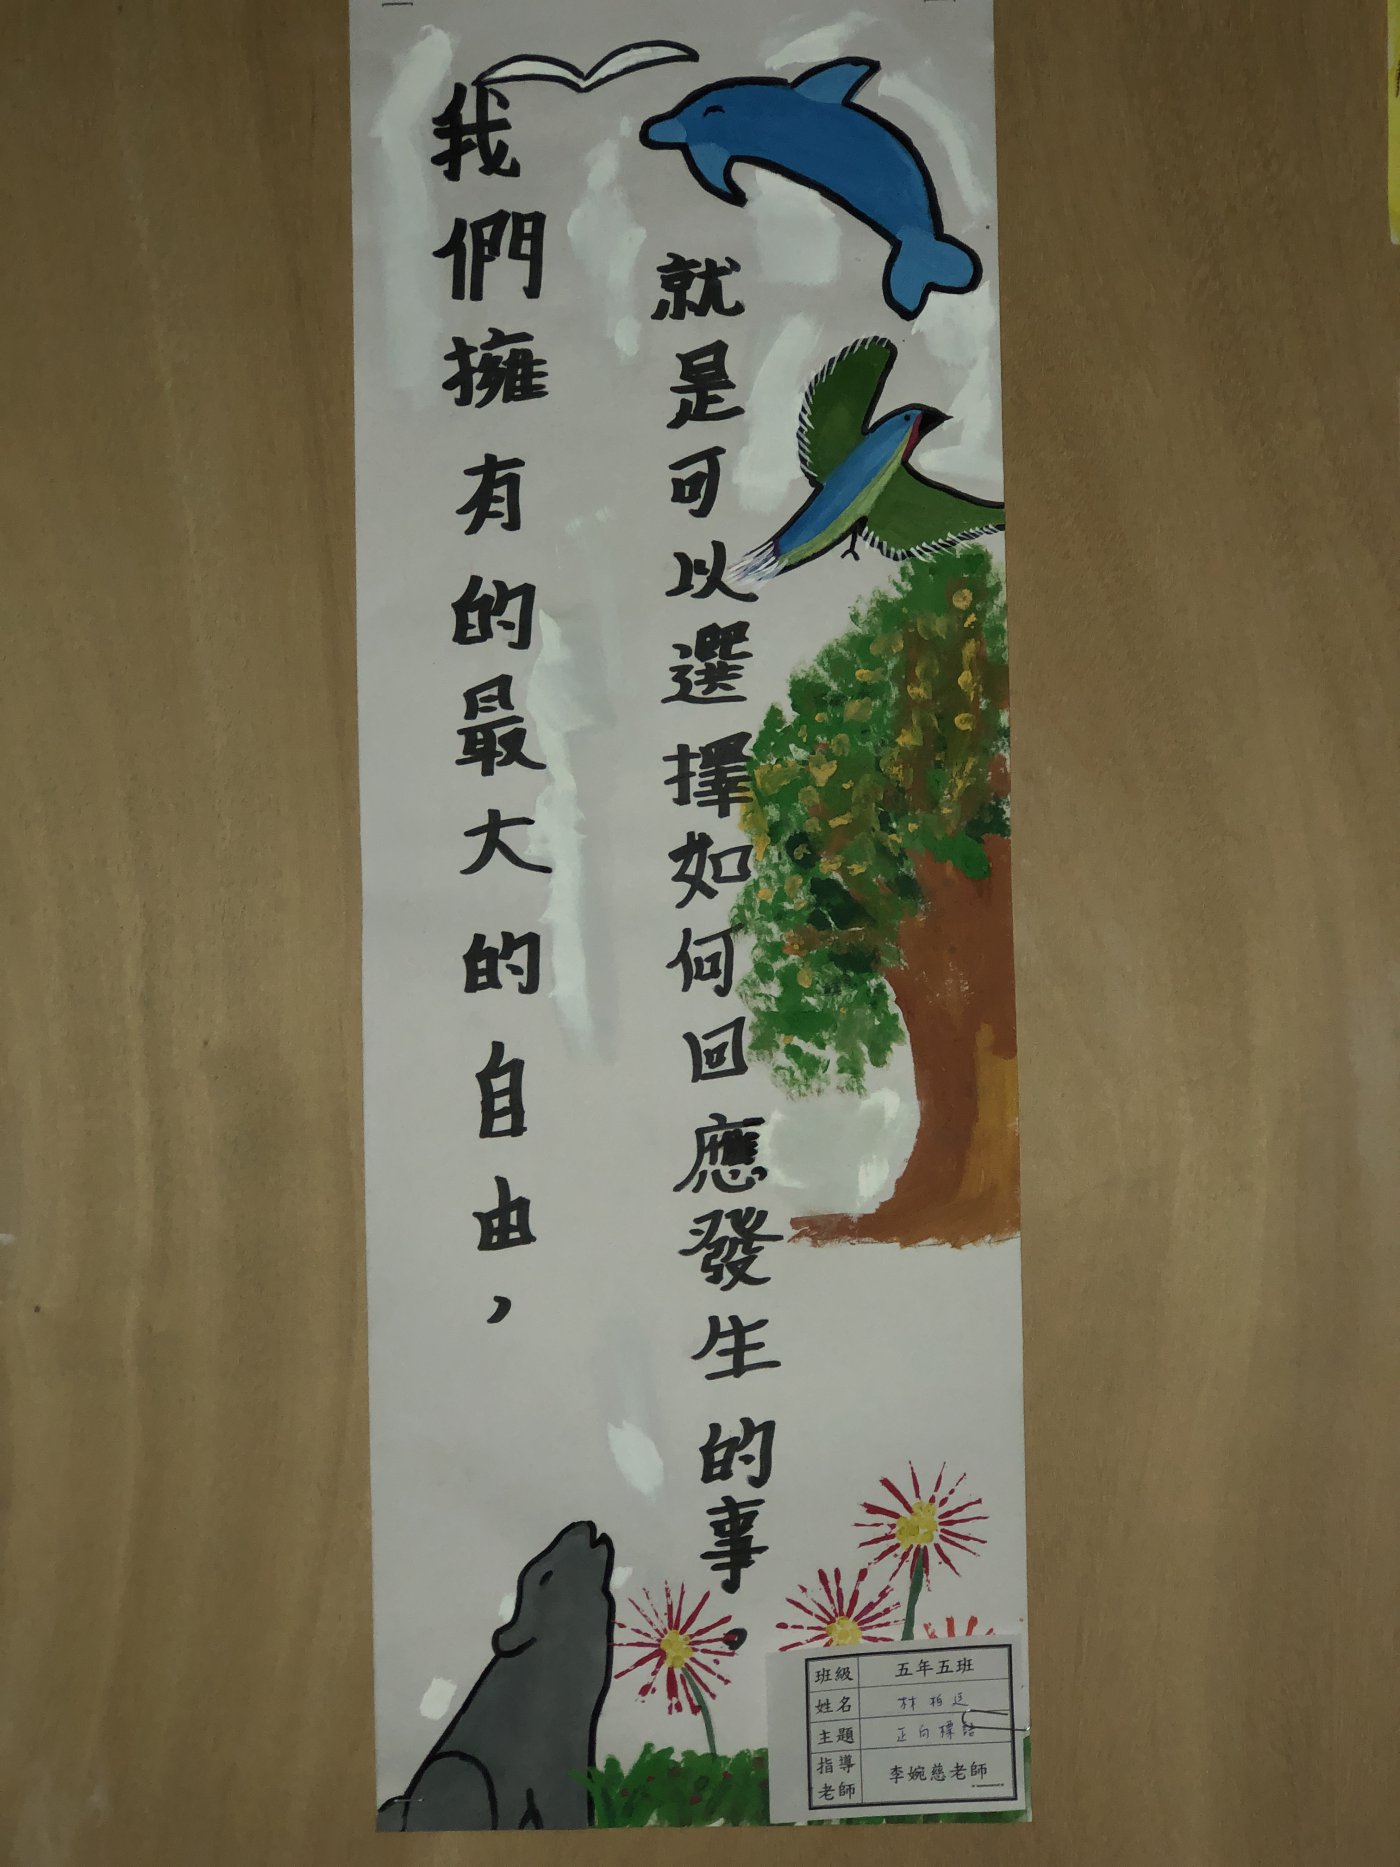 我們擁有的最大的自由，
就是可以選擇如何回應發生的事。
班級 五年五班
姓名 林柏廷
主題 正向標語
指導老師 李婉慈老師